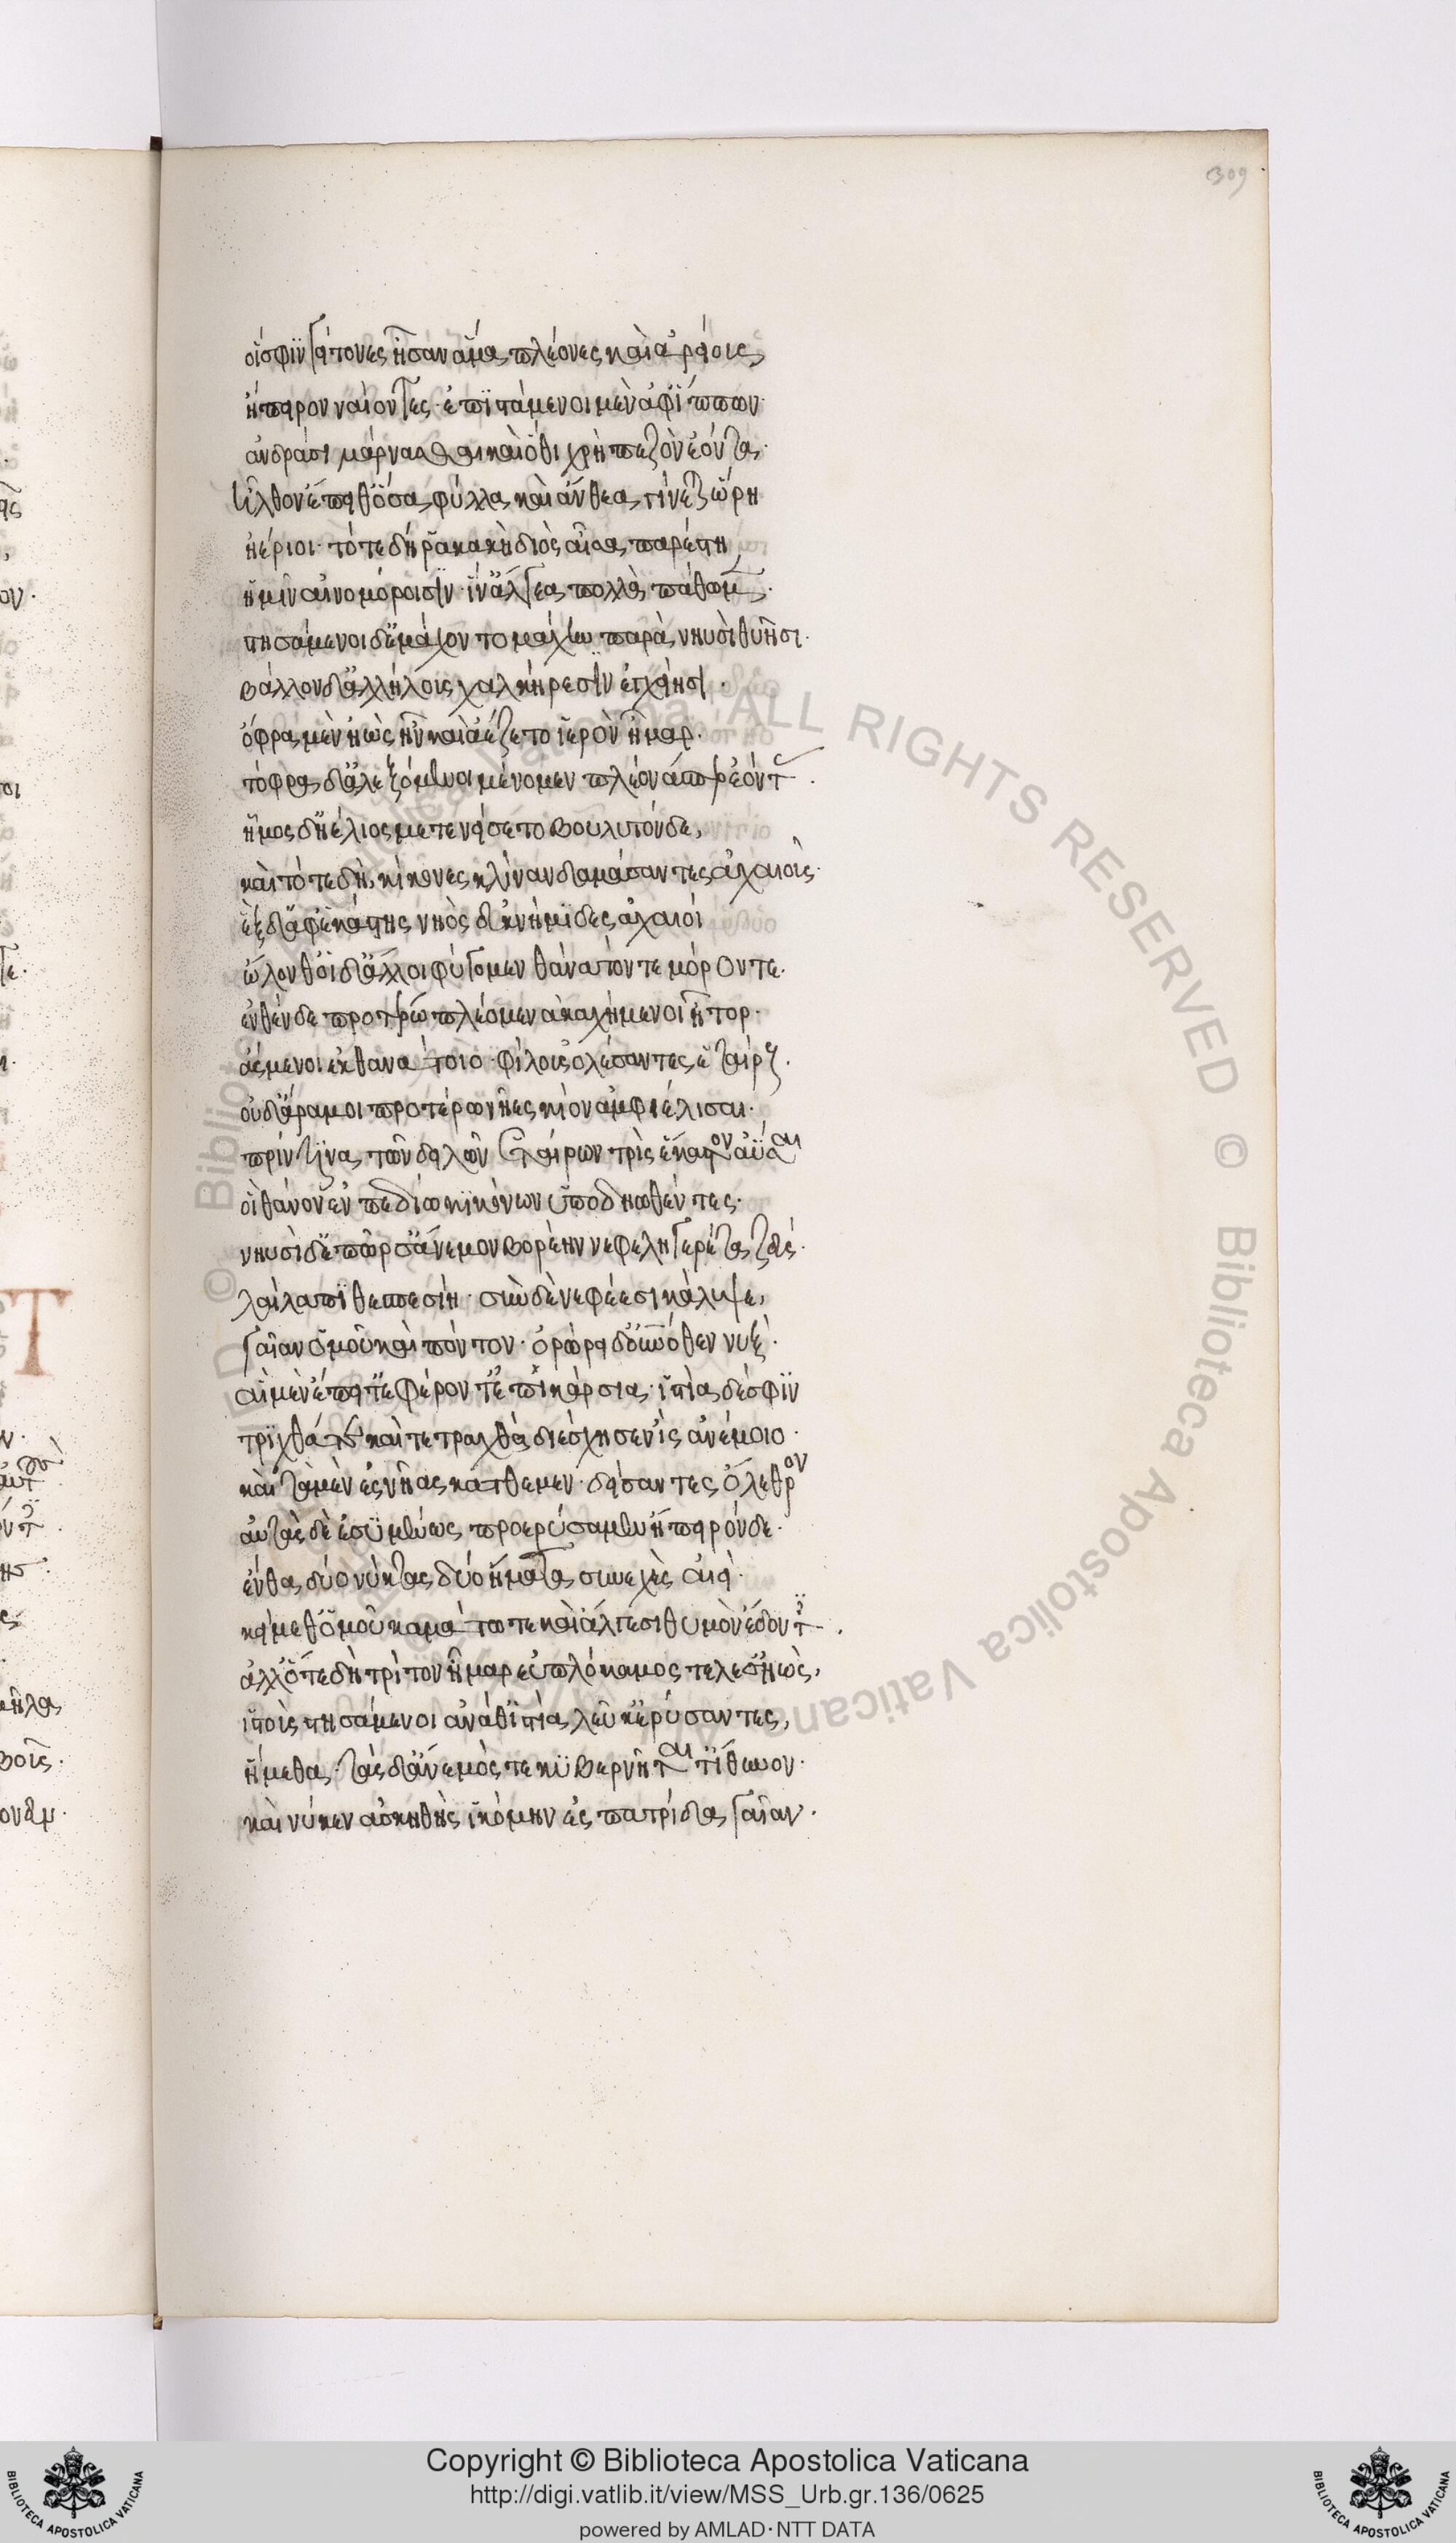 309
οἵ σφιν γείτονες ἦσαν ἅμα πλέονες καὶ ἀρείους
ἤπειρον ναίοντες· ἐπιστάμενοι μὲν ἀφ' ἵππων
ἀνδράσι μάρνασθαι καὶ ὅθι χρὴ πεζὸν ἐόντα·
ἦλθον ἔπειθ' ὅσα φύλλα καὶ ἄνθεα γίνεται ὥρῃ
ἠέριοι· τότε δή ῥα κακὴ διὸς αἶσα παρέστη
ἡμῖν αἰνομόροισιν· ἵν' ἄλγεα πολλὰ πάθωμεν·
στησάμενοι δ' ἐμάχοντο μάχην παρὰ νηυσὶ θοῇσι·
βάλλον δ' ἀλλήλους χαλκήρεσιν ἐγχείῃσι·
ὄφρα μὲν ἠὼς ἦν καὶ ἀέξετο ἱερὸν ἦμαρ·
τόφρα δ' ἀλεξόμενοι μένομεν πλέονάς περ ἐόντας·
ἦμος δ' ἠέλιος μετενείσετο βουλυτόνδε,
καὶ τότε δὴ κίκονες κλῖναν δαμάσαντες ἀχαιούς·
ἓξ δ' ἀφ' ἑκάστης νηὸς ἐυκνήμιδες ἀχαιοί
ὤλονθ' οἱ δ' ἄλλοι φύγομεν θάνατόν τε μόρον τε·
ἔνθεν δε προτέρω πλέομεν ἀκαχήμενοι ἦτορ·
ἄσμενοι ἐκ θανάτοιο· φίλους ὀλέσαντες ἑταίρους·
οὐδ' ἄρα μοι προτέρω νῆες κίον ἀμφιέλισσαι·
πρίν τινα τῶν δειλῶν ἑταίρων τρὶς ἕκαστον ἀῦσαι
οἳ θάνον ἐν πεδίω κικόνων ὕπο δηωθέντες·
νηυσὶ δ' ἐπῶρσ' ἄνεμον βορέην νεφεληγερέτα ζεύς·
λαίλαπι θεσπεσίῃ· σὺν δὲ νεφέεσι κάλυψε,
γαῖαν ὁμοῦ καὶ πόντον· ὀρώρει δ' οὐρανόθεν νυξ·
αἱ μὲν ἔπειτ' ἐφέροντ' ἐπικάρσιαι· ἱστία δέ σφιν
τριχθά τε καὶ τετραχθὰ διέσχισεν ἲς ἀνέμοιο·
καὶ τὰ μὲν ἐς νῆας κάτθεμεν· δείσαντες ὄλεθρον
αὐτὰς δ' ἐσσυμένως προερύσαμεν ἤπειρόνδε·
ἔνθα δύο νύκτας δύο ἤματα συνεχὲς αἰεί·
κείμεθ' ὁμοῦ καμάτω τε καὶ ἄλγεσι θυμὸν ἔδοντες·
ἀλλ' ὅτε δὴ τρίτον ἦμαρ εὐπλόκαμος τέλεσ' ἠώς,
ἱστοὺς στησάμενοι ἀνά θ' ἱστία λεύκ' ἐρύσαντες,
ἥμεθα· τὰς δ' ἄνεμός τε κυβερνῆται τ' ἴθυνον·
καὶ νύ κεν ἀσκηθὴς ἱκόμην ἐς πατρίδα γαῖαν·
Copyright © Biblioteca Apostolica Vaticana
http://digi.vatlib.it/view/MSS_Urb.gr.136/0625
powered by AMLAD·NTT DATA